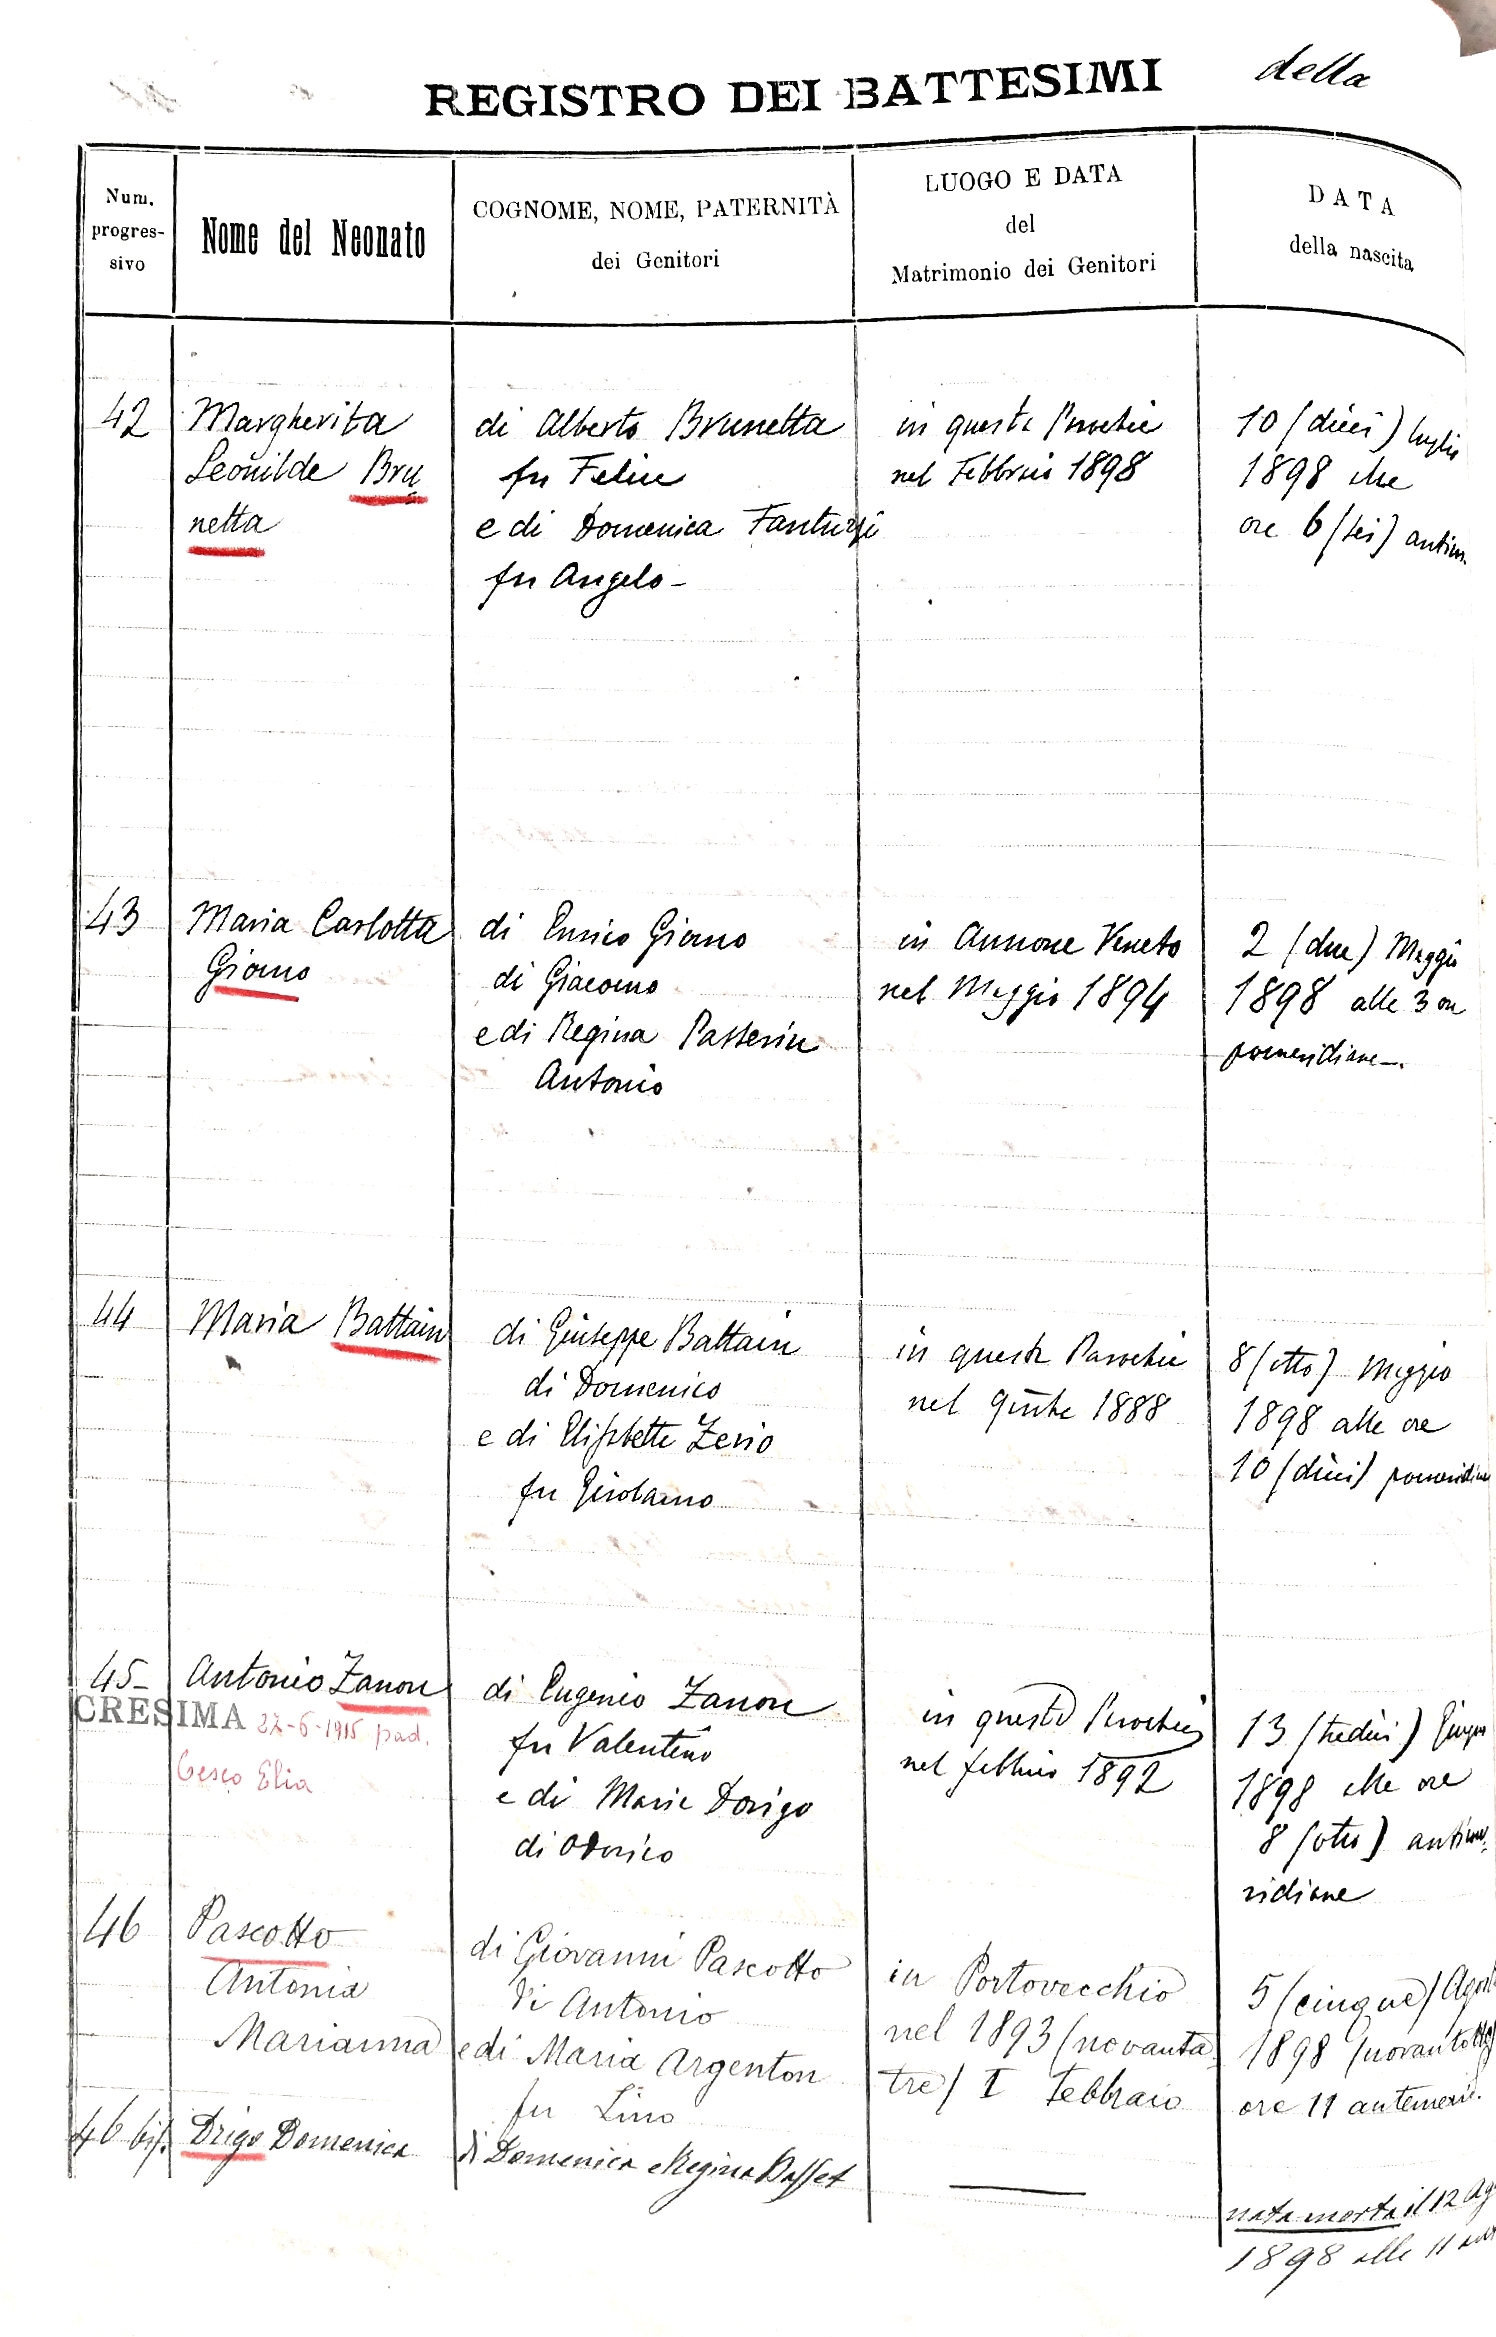 REGISTRO DEI BATTESIMI
della
Num.
progres-
sivo
Nome del Neonato
COGNOME, NOME, PATERNITÀ
dei Genitori
LUOGO E DATA
del
Matrimonio dei Genitori
DATA
della nascita
42
Margherita
Leonilde Bru
netta
di Alberto Brunetta
fu Felice
e di Domenica Fantuzzi
fu Angelo -
in questa Parochia
nel Febbraio 1898
10 (dieci) luglio
1898 alle
ore 6 (sei) antim.
43
Maria Carlotta
Giomo
di Enrico Giomo
di Giacomo
e di Regina Passerin
Antonio
in Annone Veneto
nel Maggio 1894
2 (due) Maggio
1898 alle 3 ore
pomeridiane -.
44
Maria Battain
di Giuseppe Battain
di Domenico
e di Elisabetta Zerio
fu Girolamo
in questa Parochia
nel 1888
8 (otto) Maggio
1898 alle ore
10 (dieci) pomeridiane
45 -
Antonio Zanon
CRESIMA 27-6-1915 pad.
Cesco Elia
di Eugenio Zanon
fu Valentino
e di Maria Dorigo
di Odorico
in questa Parochia
nel febbraio 1892
13 (tredici) Giugno
1898 alle ore
8 (otto) antime,
ridiane
46
Pascotto
Antonia
Marianna
di Giovanni Pascotto
di Antonio
e di Maria Argenton
fu Lino
in Portovecchio
nel 1893 (novanta
tre) I Febbraio
5 (cinque) Agost
1898 (novantotto)
ore 11 antemerid.
46 bis.
Drigo Domenica
di Domenico e Regina Basset
nata morta il 12 Ag
1898 alle 11 ant